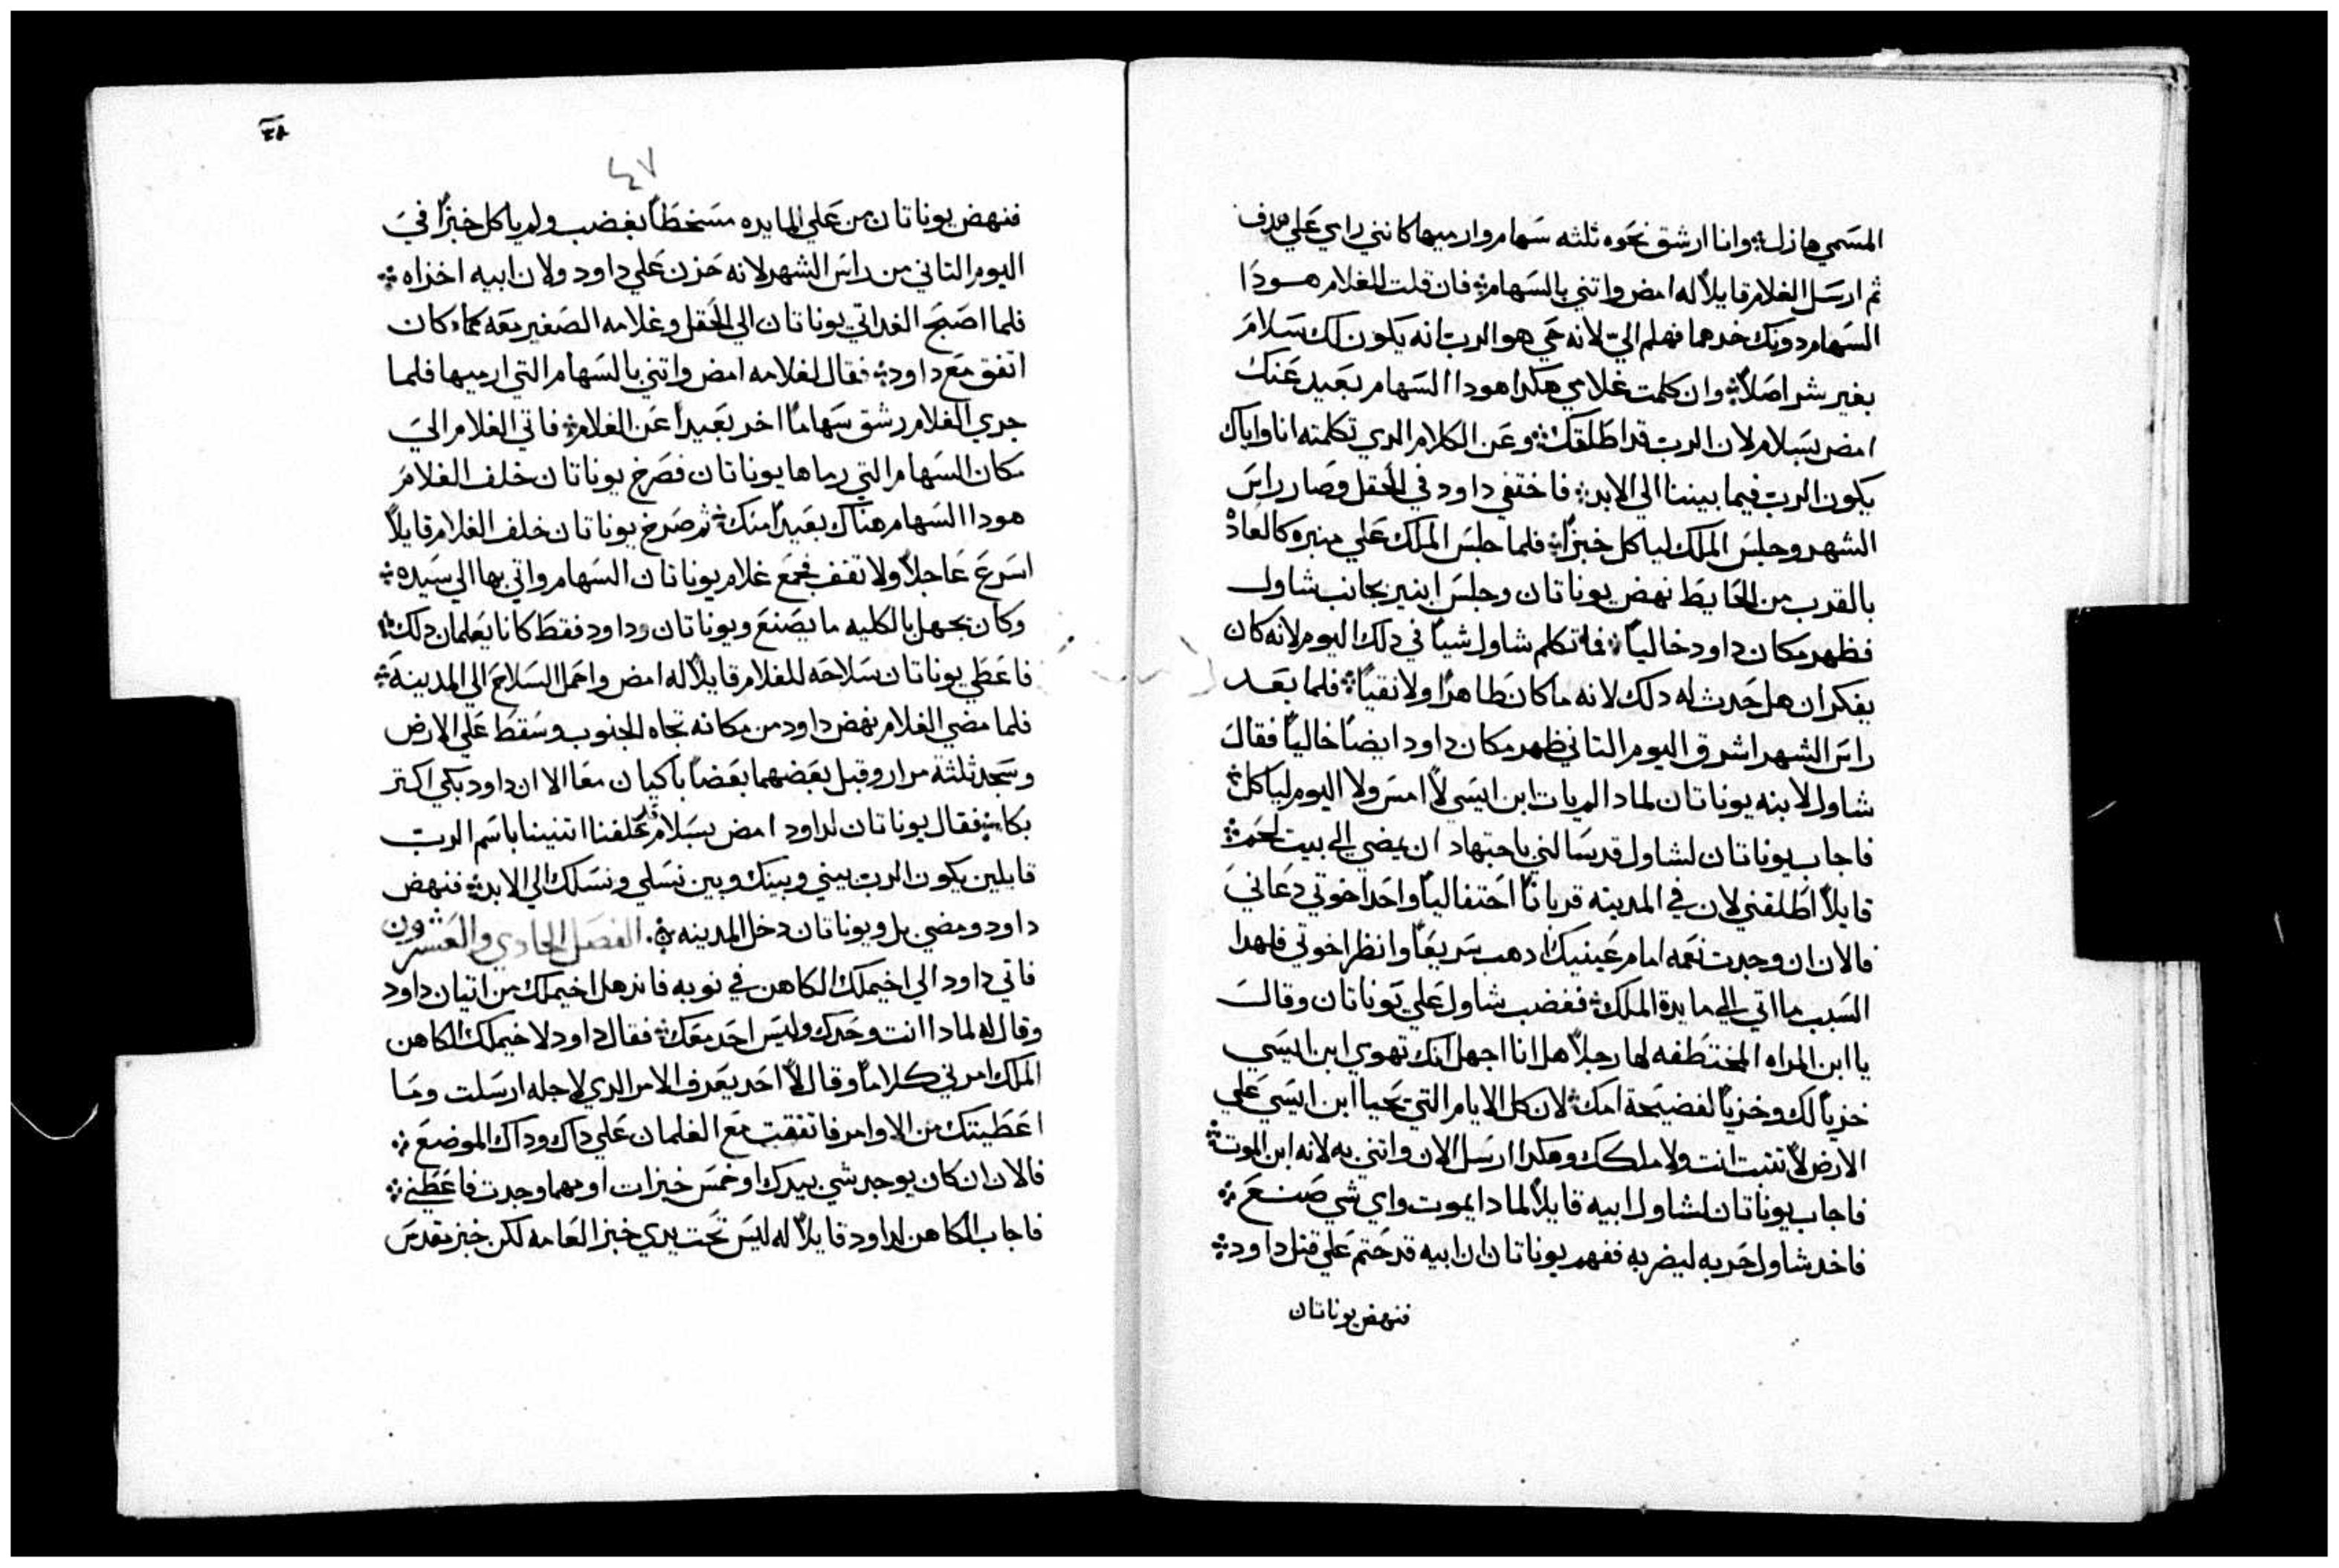 المسمي هازل ⁘ وانا ارشق نحوه ثلثه سهام وارميها كانني رامي علي هدف
ثم ارسل الغلام قايلاً له امض واتني بالسهام ⁘ فان قلت للغلام هودا
السهام دونك خدهما فهلم اليّ لانه حي هو الرب انه يكون لك سلام
بغير شر اصلاً ⁘ وان كلمت غلامي هكدا هودا السهام بعيد عنك
امض بسلام لان الرب قد اطلقك ⁘ وعن الكلام الدي تكلمته انا واياك
يكون الرب فيما بيننا الي الابد ⁘ فاختفي داود في الحقل وصار راس
الشهر وجلس الملك لياكل خبزاً ⁘ فلما جلس الملك علي منبره كالعاده
بالقرب من الحايط نهض يوناتان وجلس ابنير بجانب شاول
فظهر مكان داود خالياً ⁘ فما تكلم شاول شياً في دلك اليوم لانه كان
يفكر ان هل حدث له دلك لانه ما كان طاهراً ولا نقياً ⁘ فلما بعد
راس الشهر اشرق اليوم التاني ظهر مكان داود ايضاً خالياً فقال
شاول لابنه يوناتان لمادا لم يات ابن ايسي لا امس ولا اليوم لياكل ⁘
فاجاب يوناتان لشاول قد سالني باجتهاد ان يمضي الي بيت لحم ⁘
قايلاً اطلقني لان في المدينه قرباناً احتفالياً واحد اخوتي دعاني
فالان ان وجدت نعمه امام عينيك ادهب سريعاً وانظر اخوتي فلهدا
السبب ما اتي الي مايدة الملك ⁘ فغضب شاول علي يوناتان وقال
يا ابن المراه المختطفه لها رجلاً هل انا اجهل انك تهوي ابن ايسي
خزياً لك وخزياً لفضيحة امك ⁘ لان كل الايام التي يحيا ابن ايسي علي
الارض لا تتبت انت ولا ملكك وهكدا ارسل الان واتني به لانه ابن الموت ⁘
فاجاب يوناتان لشاول ابيه قايلاً لمادا يموت واي شي صنع ⁘
فاخد شاول حربه ليضربه ففهم يوناتان ان ابيه قد حتم علي قتل داود ⁘
فنهض يوناتان
٤٨
٤٧
فنهض يوناتان من علي المايده متسخطاً بغضب ولم ياكل خبزاً في
اليوم التاني من راس الشهر لانه حزن علي داود ولان ابيه اخزاه ⁘
فلما اصبح الغد اتي يوناتان الي الحقل وغلامه الصغير معه كما كان
اتفق مع داود ⁘ فقال لغلامه امض واتني بالسهام التي ارميها فلما
جري الغلام رشق سهاماً اخر بعيداً عن الغلام ⁘ فاتي الغلام الي
مكان السهام التي رماها يوناتان فصرخ يوناتان خلف الغلام
هودا السهام هناك بعيداً منك ⁘ ثم صرخ يوناتان خلف الغلام قايلاً
اسرع عاجلاً ولا تقف فجمع غلام يوناتان السهام واتي بها الي سيده ⁘
وكان يجهل بالكليه ما يصنع ويوناتان وداود فقط كانا يعلمان دلك ⁘
فاعطي يوناتان سلاحه للغلام قايلاً له امض واحمل السلاح الي المدينة ⁘
فلما مضي الغلام نهض داود من مكانه تجاه الجنوب وسقط علي الارض
وسجد ثلثة مرار وقبل بعضهما بعضاً باكيان معا الا ان داود بكي اكتر
بكا ⁘ فقال يوناتان لداود امض بسلام قد حلفنا اتنيننا باسم الرب
قايلين يكون الرب بيني وبينك وبين نسلي ونسلك الي الابد ⁘ فنهض
داود ومضي بل ويوناتان دخل المدينه ⁘ الفصل الحادي والعشرون
فاتي داود الي اخيملك الكاهن في نوبه فاندهل اخيملك من اتيان داود
وقال له لمادا انت وحدك وليس احد معك ⁘ فقال داود لاخيملك الكاهن
الملك امرني كلاماً وقال لا احد يعرف الامر الدي لاجله ارسلت وما
اعطيتك من الاوامر فاتفقت مع الغلمان علي داك وداك الموضع ⁘
فالان ان كان يوجد شي بيدك او خمس خبزات او مهما وجدت فاعطني ⁘
فاجاب الكاهن لداود قايلاً له ليس تحت يدي خبز العامه لكن خبز تقدس